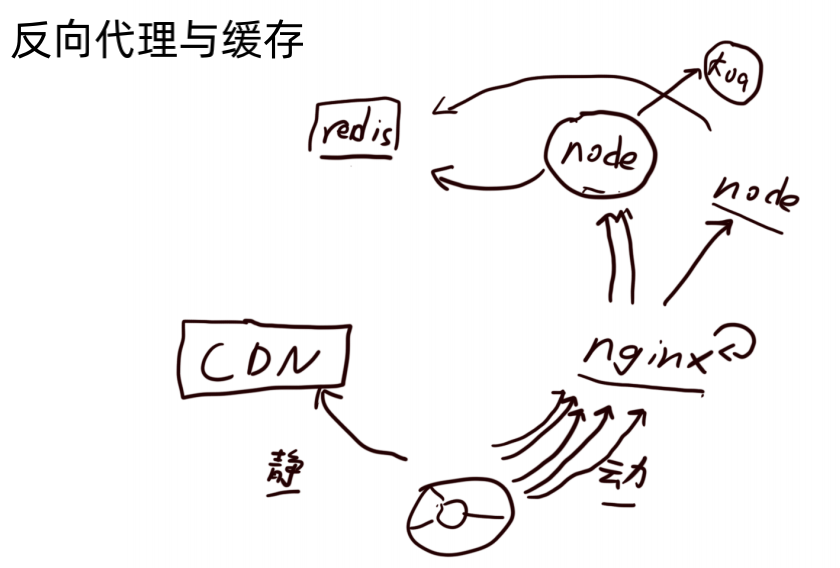 反向代理与缓存
koa
redis
node
node
CDN
nginx
静
动